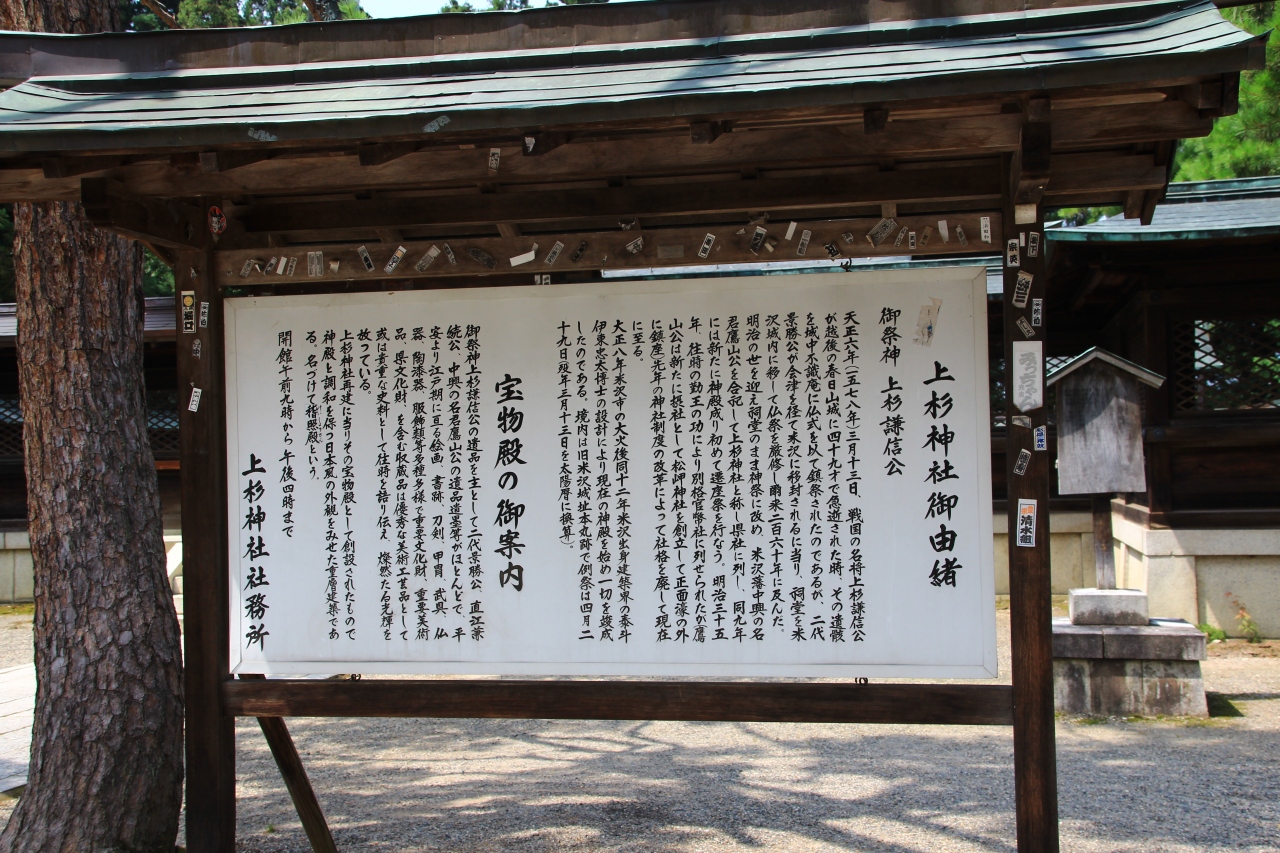 上杉神社御由緒
御祭神 上杉謙信公
天正六年(一五七八年)三月十三日、戦国の名将上杉謙信公
が越後の春日山城に四十九才で急逝された時、その遺骸
を城中不識庵に仏式を以て鎮祭されたのであるが、二代
景勝公が会津を経て米沢に移封されるに当り、祠堂を米
沢城内に移して仏祭を厳修し爾来二百六十年に及んだ。
明治の世を迎え祠堂のまま神祭に改め、米沢藩中興の名
君鷹山公を合祀して上杉神社と称し県社に列し、同九年
には新たに神殿成り初めて遷座祭を行なう。明治三十五
年、往時の勤王の功により別格官幣社に列せられたが鷹
山公は新たに摂社として松岬神社を創立して正面濠の外
に鎮座先年の神社制度の改革によって社格を廃して現在
に至る。
大正八年米沢市の大火後同十二年米沢出身建築界の泰斗
伊東忠太博士の設計により現在の神殿を始め一切を竣成
したのである、境内は旧米沢城址本丸跡で例祭は四月二
十九日歿年三月十三日を太陽暦に換算)。
宝物殿の御案内
御祭神上杉謙信公の遺品を主として二代景勝公、直江兼
続公、中興の名君鷹山公の遺品遺墨等がほとんどで、平
安より江戸期に亘る絵画、書跡、刀剣、甲冑、武具、仏
器、陶漆器、服飾類等多種多様で重要文化財、重要美術
品、県文化財、を含む収蔵品は優秀な美術工芸品として
或は貴重な史料として往時を語り伝え 燦然たる光輝を
放っている。
上杉神社再建に当りその宝物殿として創設されたもので
神殿と調和を保つ日本風の外観をみせた重層建築であ
る、名づけて稽照殿という。
開館午前九時から 午後四時まで
上杉神社社務所
清水組